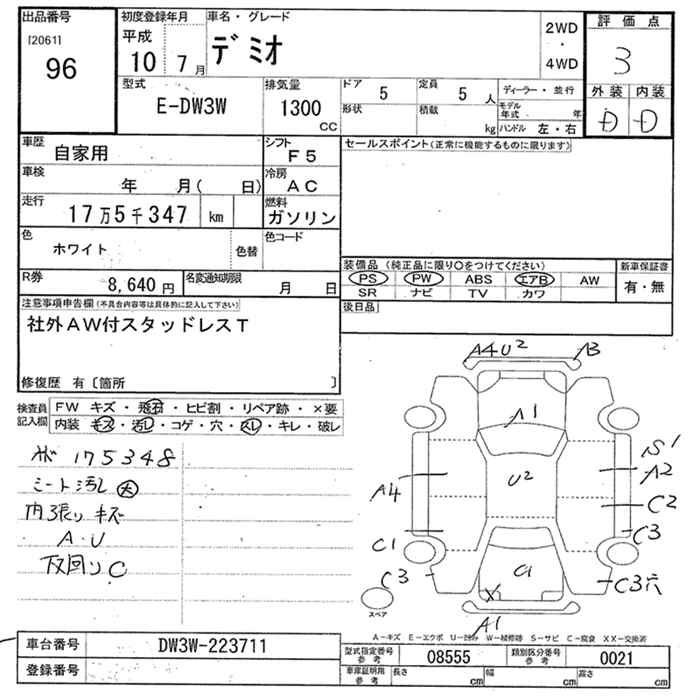 出品番号
[2061]
96
初度登録年月
平成
10 7月
車名・グレード
デミオ
2WD
・
4WD
評価点
3
外装 内装
D D
型式
E-DW3W
排気量
1300
cc
ドア 5
定員 5 人
形状
積載 kg
ディーラー・並行
モデル年式 年
ハンドル 左・右
車歴 自家用
シフト F5
車検 年 月( 日)
冷房 AC
走行 17万5千347 km
燃料 ガソリン
色 ホワイト 色替
色コード
R券 8,640円
名変通知期限 月 日
セールスポイント(正常に機能するものに限ります)
装備品(純正品に限り○をつけてください)
PS PW ABS エアB AW
SR ナビ TV カワ
新車保証書
有・無
後日品
注意事項申告欄(不具合内容等は具体的に記入して下さい)
社外AW付スタッドレスT
修復歴 有〔箇所 〕
検査員記入欄
FW キズ・飛石・ヒビ割・リペア跡・×要
内装・キズ・汚レ・コゲ・穴・スレ・キレ・破レ
175348
シート汚レ 大
内張りキズ
A・U
下回りC
A4U2 A3
A1
S1
A2
U2
A4
C2
C3
C1
C3
C1
C3穴
X
A1
スペア
A-キズ E-エクボ U-凹み W-補修跡 S-サビ C-腐食 XX-交換済
車台番号 DW3W-223711
登録番号
型式指定番号 参考 08555
類別区分番号 参考 0021
車庫証明用 参考 長さ cm 幅 cm 高さ cm